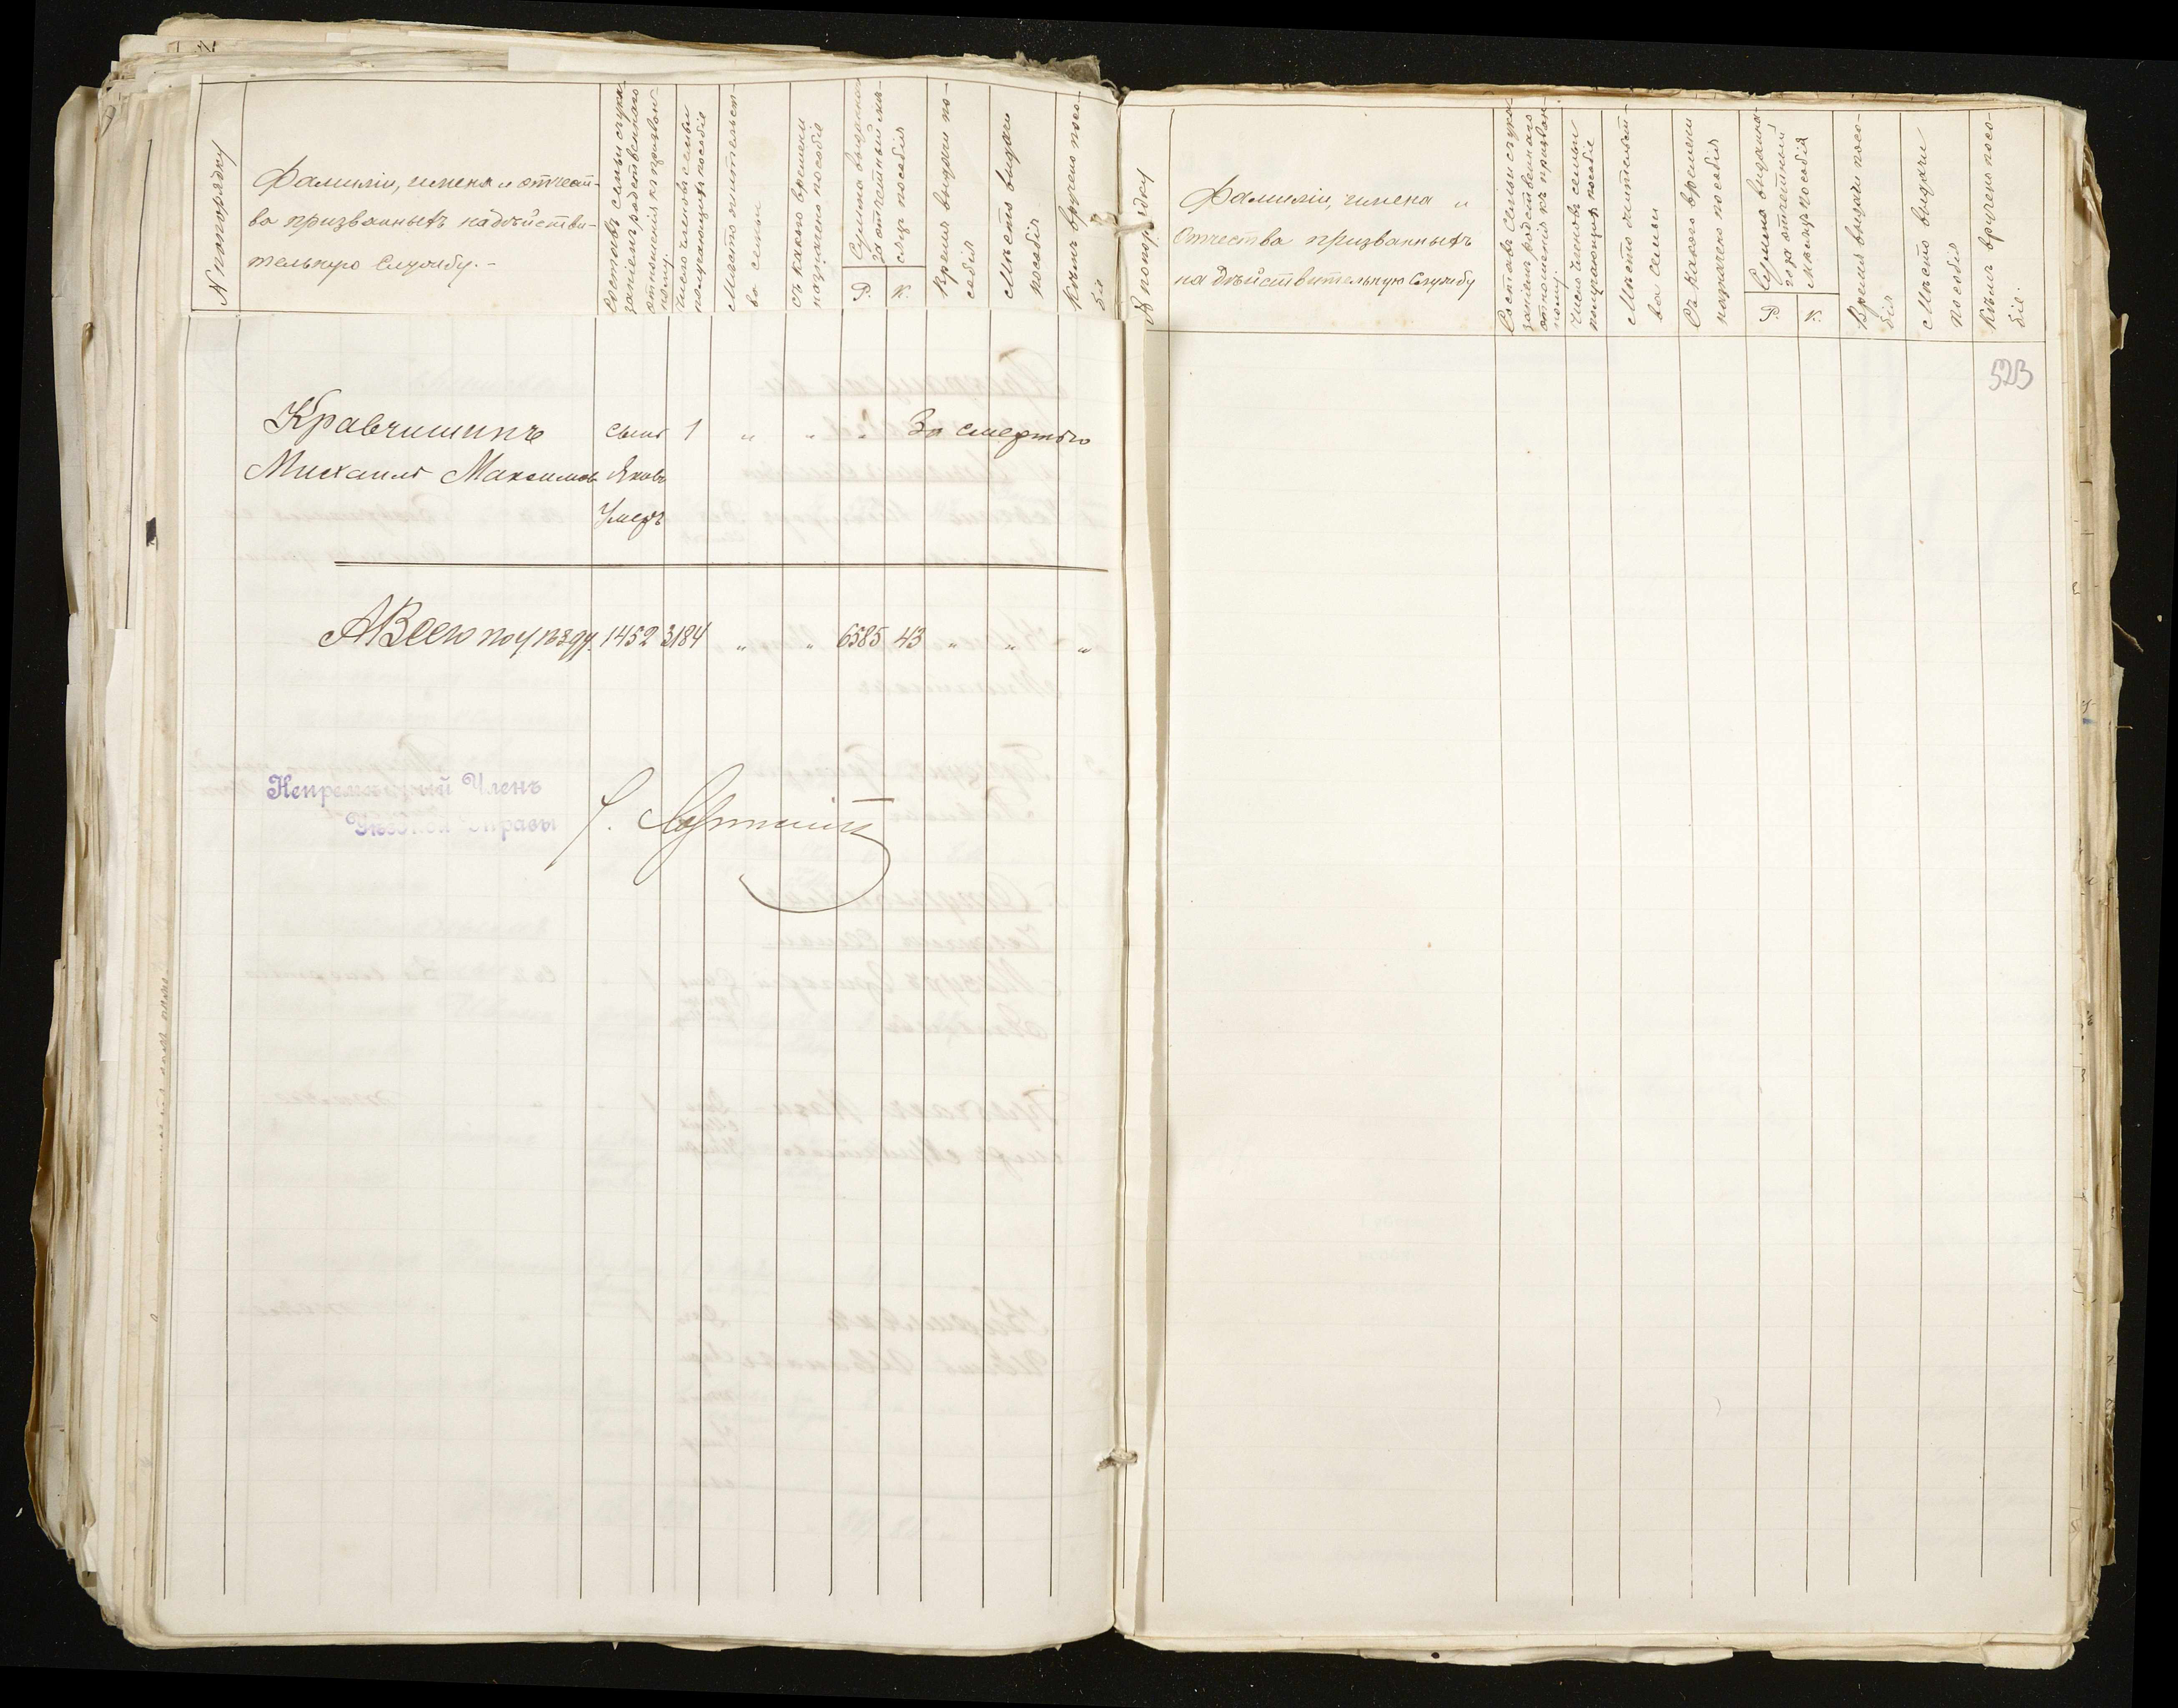 № по порядку
Фамиліи, имена и отчест-
ва призванныхъ на дѣйстви-
тельную службу.-
Составъ семьи съ ука-
заніемъ родственнаго
отношенія къ призван-
ному.
Число членовъ семьи
получающихъ пособія
Мѣсто жительст-
ва семьи
Съ какого времени
назначено пособія
Сумма выданнаго
за отчетный мѣ-
сяцъ пособія
Р.
К.
Время выдачи по-
собія
Мѣсто выдачи
пособія
Кѣмъ вручено посо-
біе
Кравчишинъ сынъ 1 " " " За смертью
Михаилъ Максимовъ Яковъ
Умеръ
А Всего по уѣзду. 1452 3184 " " 6585 43 " " "
Непремѣнный Членъ
Уѣздной Управы
№ по порядку
Фамиліи, имена и
Отчества призванныхъ
на дѣйствительную Службу
Составъ семьи съ ука-
заніемъ родственнаго
отношенія къ призван-
ному.
Число членовъ семьи
получающихъ пособіе
Мѣсто жительст-
ва семьи
Съ какого времени
назначено пособія
Сумма выданная
за отчетный
мѣсяцъ пособія
Р.
К.
Время выдачи посо-
бія
Мѣсто выдачи
пособія
Кѣмъ вручено посо-
біе.